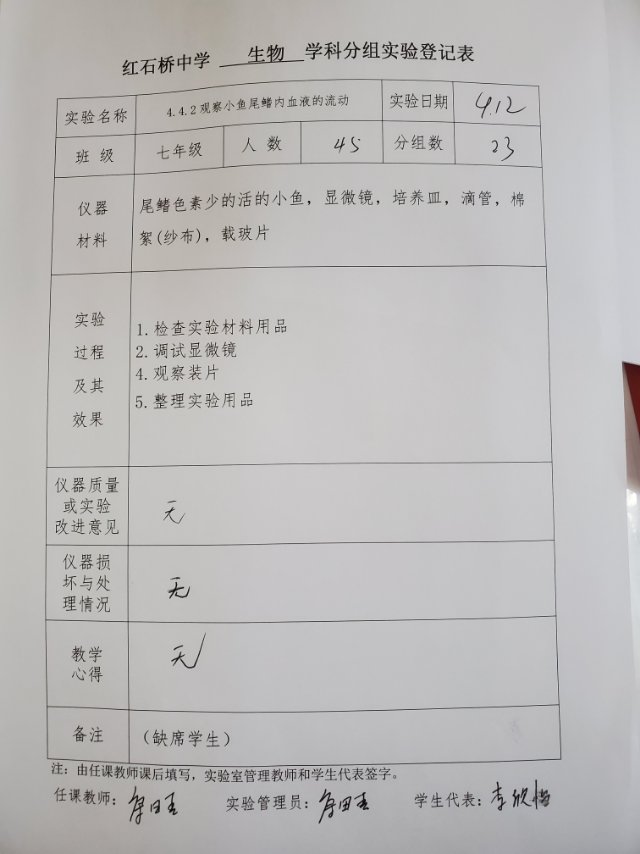 红石桥中学 生物 学科分组实验登记表
实验名称 4.4.2观察小鱼尾鳍内血液的流动 实验日期 4.12
班 级 七年级 人 数 45 分组数 23
仪器
材料
尾鳍色素少的活的小鱼，显微镜，培养皿，滴管，棉
絮(纱布)，载玻片
实验
过程
及其
效果
1.检查实验材料用品
2.调试显微镜
4.观察装片
5.整理实验用品
仪器质量
或实验
改进意见
无
仪器损
坏与处
理情况
无
教学
心得
无
备注 （缺席学生）
注：由任课教师课后填写，实验室管理教师和学生代表签字。
任课教师： 实验管理员： 学生代表：李